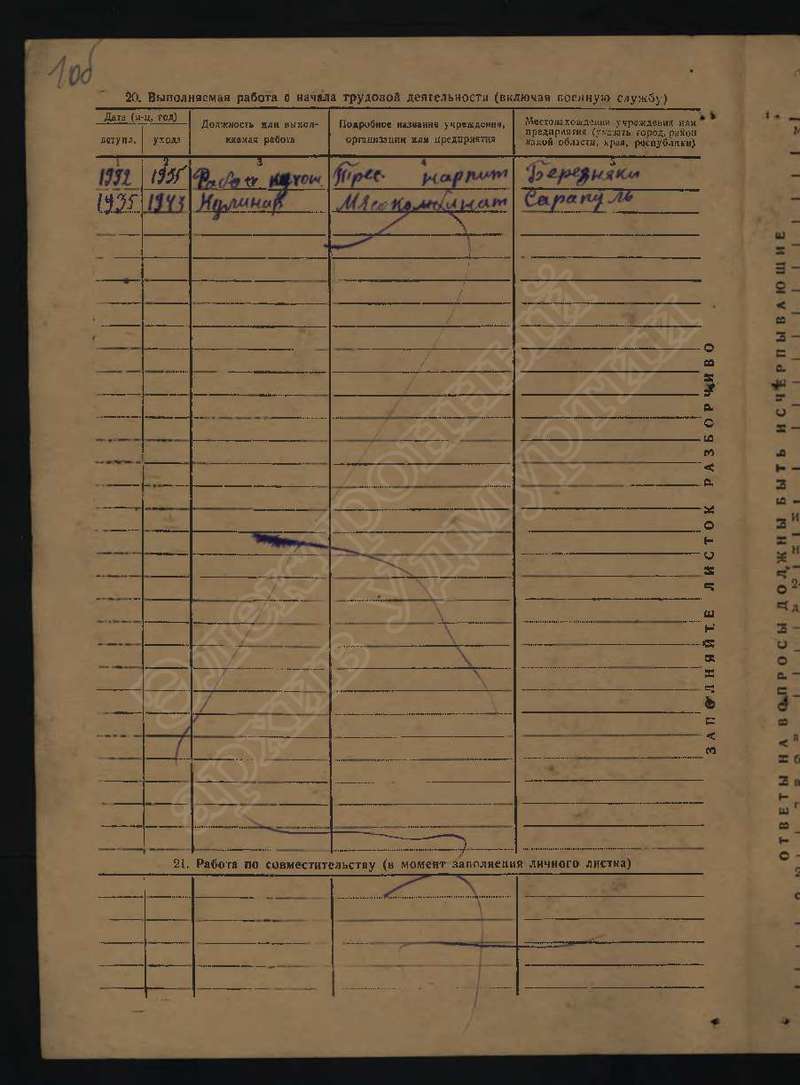 10б
20. Выполняемая работа с начала трудовой деятельности (включая военную службу)
Дата (м-ц, год)
вступл.
ухода
Должность или выполняемая работа
Подробное название учреждения, организации или предприятия
Местонахождение учреждения или предприятия (указать город, район какой области, края, республики)
1 2 3 4 5
1932 1935 нарпит Березняки
1935 1943 Кулинар Мясокомбинат Сарапуль
ЗАПОЛНЯЙТЕ ЛИСТОК РАЗБОРЧИВО
Электронный
архив Удмуртии
21. Работа по совместительству (в момент заполнения личного листка)
ОТВЕТЫ НА ВОПРОСЫ ДОЛЖНЫ БЫТЬ ИСЧЕРПЫВАЮЩИЕ